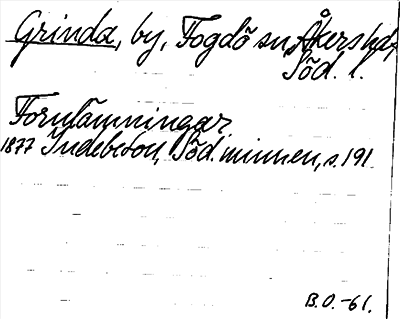 Grinda, by, Fogdö sn, Åkers hd,
Söd. l.
Fornlämningar.
1877 Indebetou, Söd. minnen, s. 191.
B.O.-61.